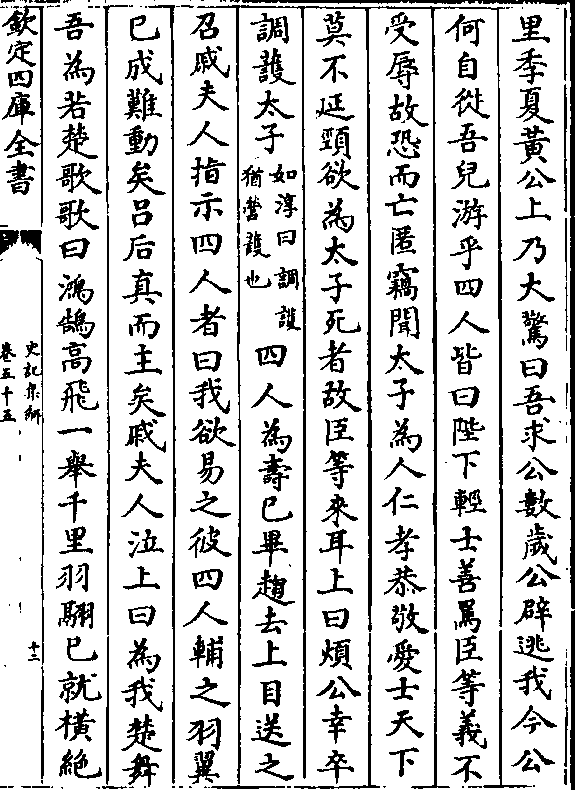 里季夏黃公上乃大驚曰吾求公數歲公辟逃我今公
何自從吾兒游乎四人皆曰陛下輕士善罵臣等義不
受辱故恐而亡匿竊聞太子為人仁孝恭敬愛士天下
莫不延頸欲為太子死者故臣等來耳上曰煩公幸卒
調護太子如淳曰調護猶營護也四人為壽已畢趨去上目送之
召戚夫人指示四人者曰我欲易之彼四人輔之羽翼
已成難動矣呂后真而主矣戚夫人泣上曰為我楚舞
吾為若楚歌歌曰鴻鵠高飛一舉千里羽翮已就橫絶
欽定四庫全書
史記集解
卷五十五
十二